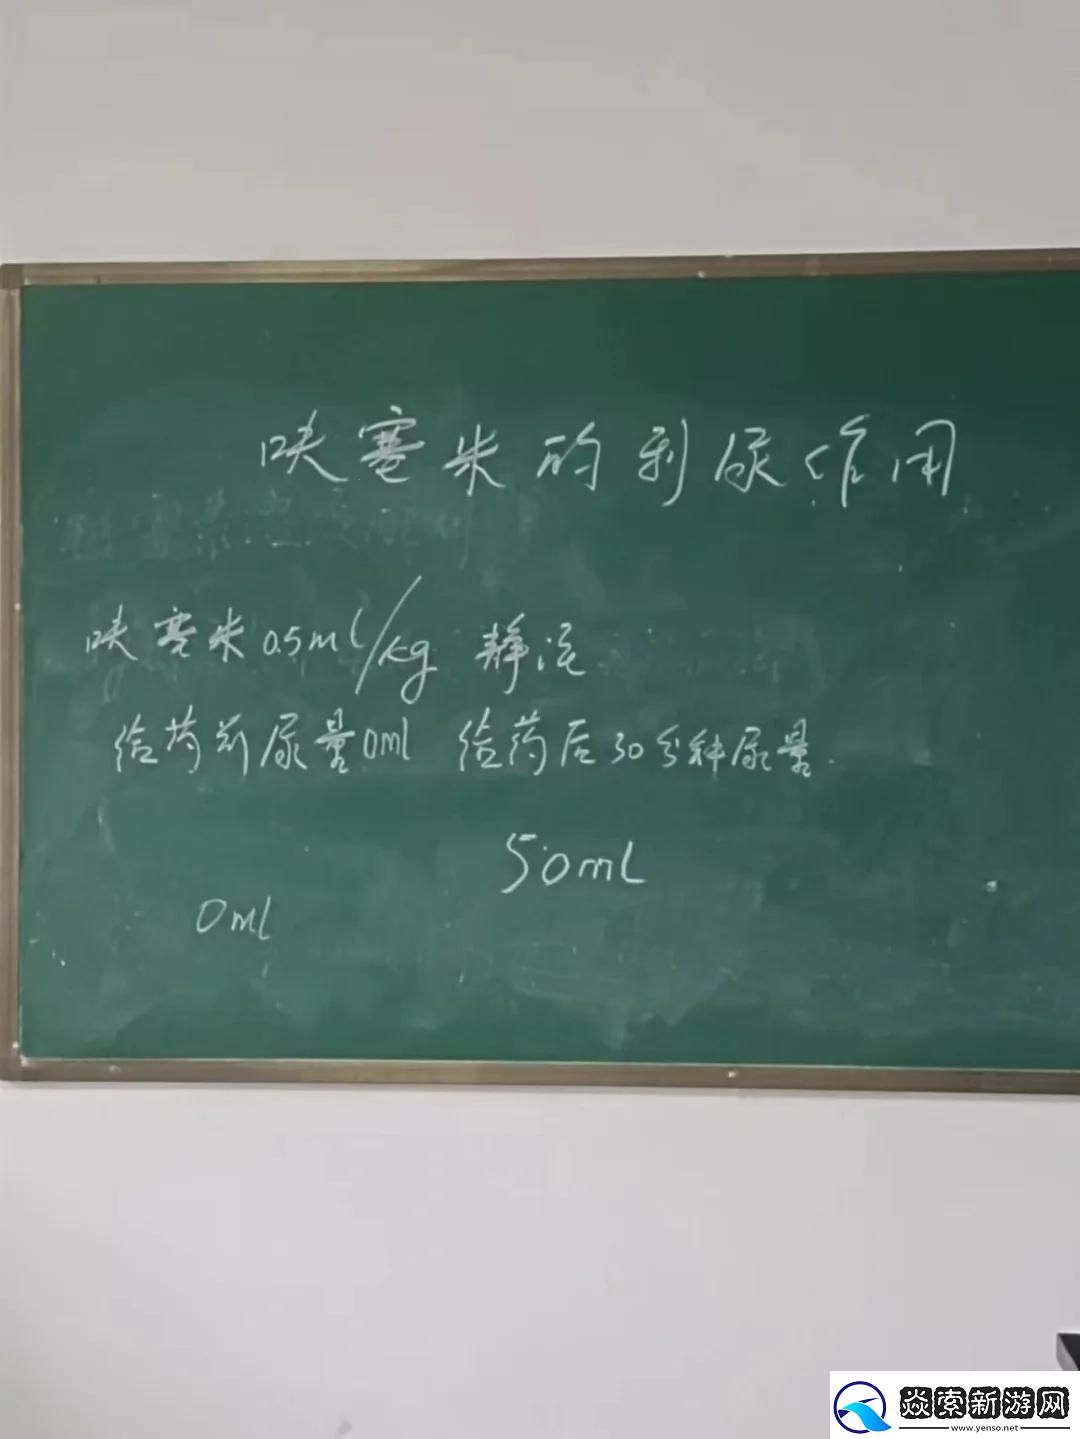 呋塞米的利尿作用
呋塞米0.5ml/kg 静注
给药前尿量0ml 给药后30分种尿量.
50ml
0ml
焱索新游网
www.yenso.net